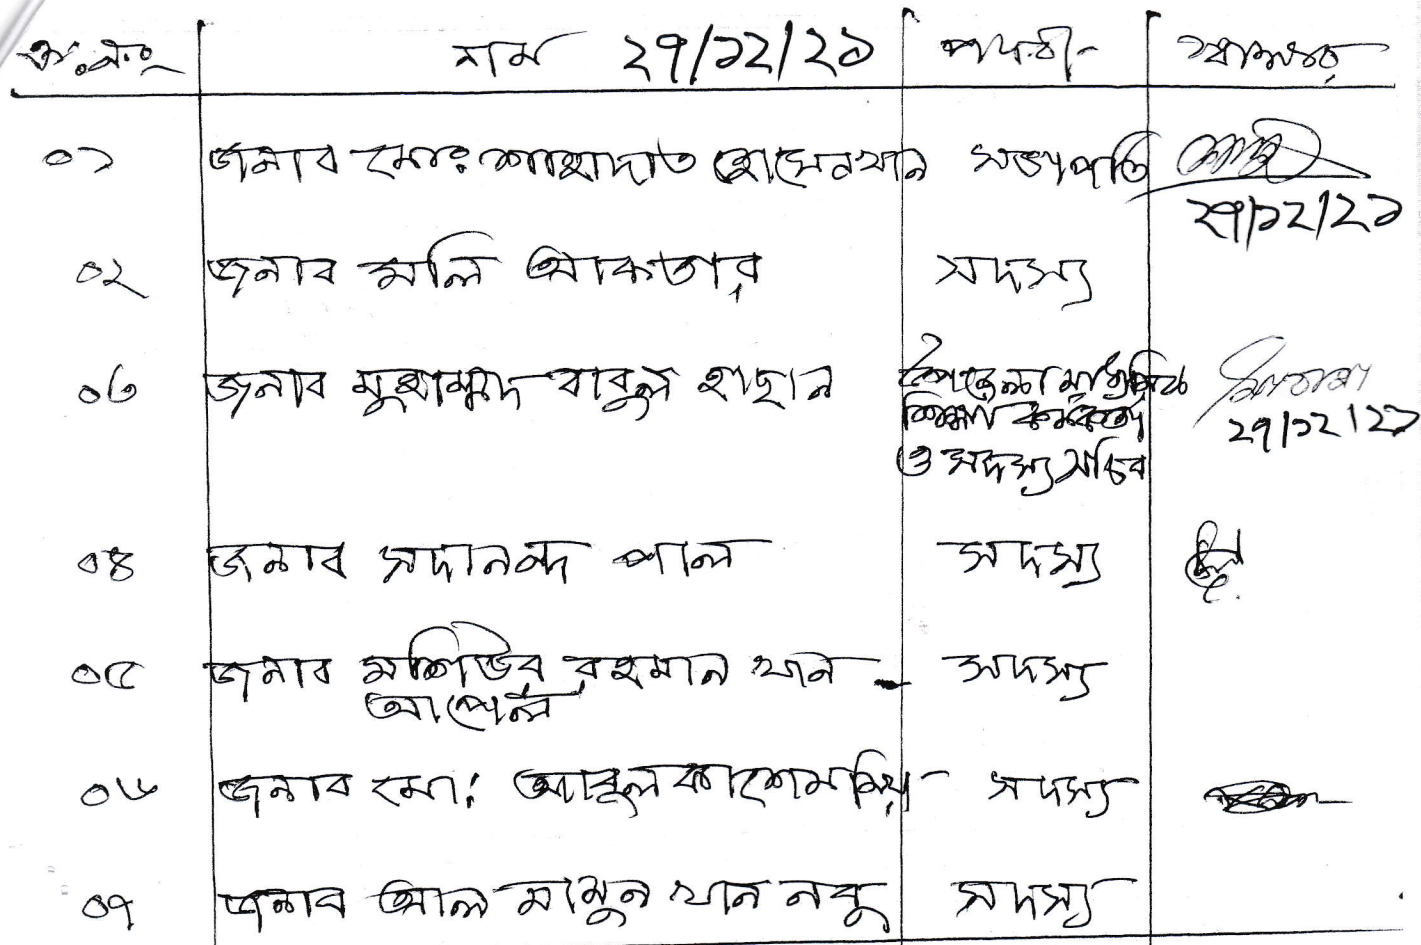 ক্র.নং নাম ২৭/১২/২১ পদবী স্বাক্ষর
০১ জনাব মোঃ শাহাদাত হোসেন খান সভাপতি
২৭/১২/২১
০২ জনাব মলি আকতার সদস্য
০৩ জনাব মুহাম্মদ বাবুল হাছান উপজেলা মাধ্যমিক
শিক্ষা কর্মকর্তা ২৭/১২/২১
ও সদস্য সচিব
০৪ জনাব সদানন্দ পাল সদস্য
০৫ জনাব মশিউর রহমান খান - সদস্য
আপেল
০৬ জনাব মো: আবুল কাশেম মিয়া সদস্য
০৭ জনাব আল মামুন খান নবু সদস্য